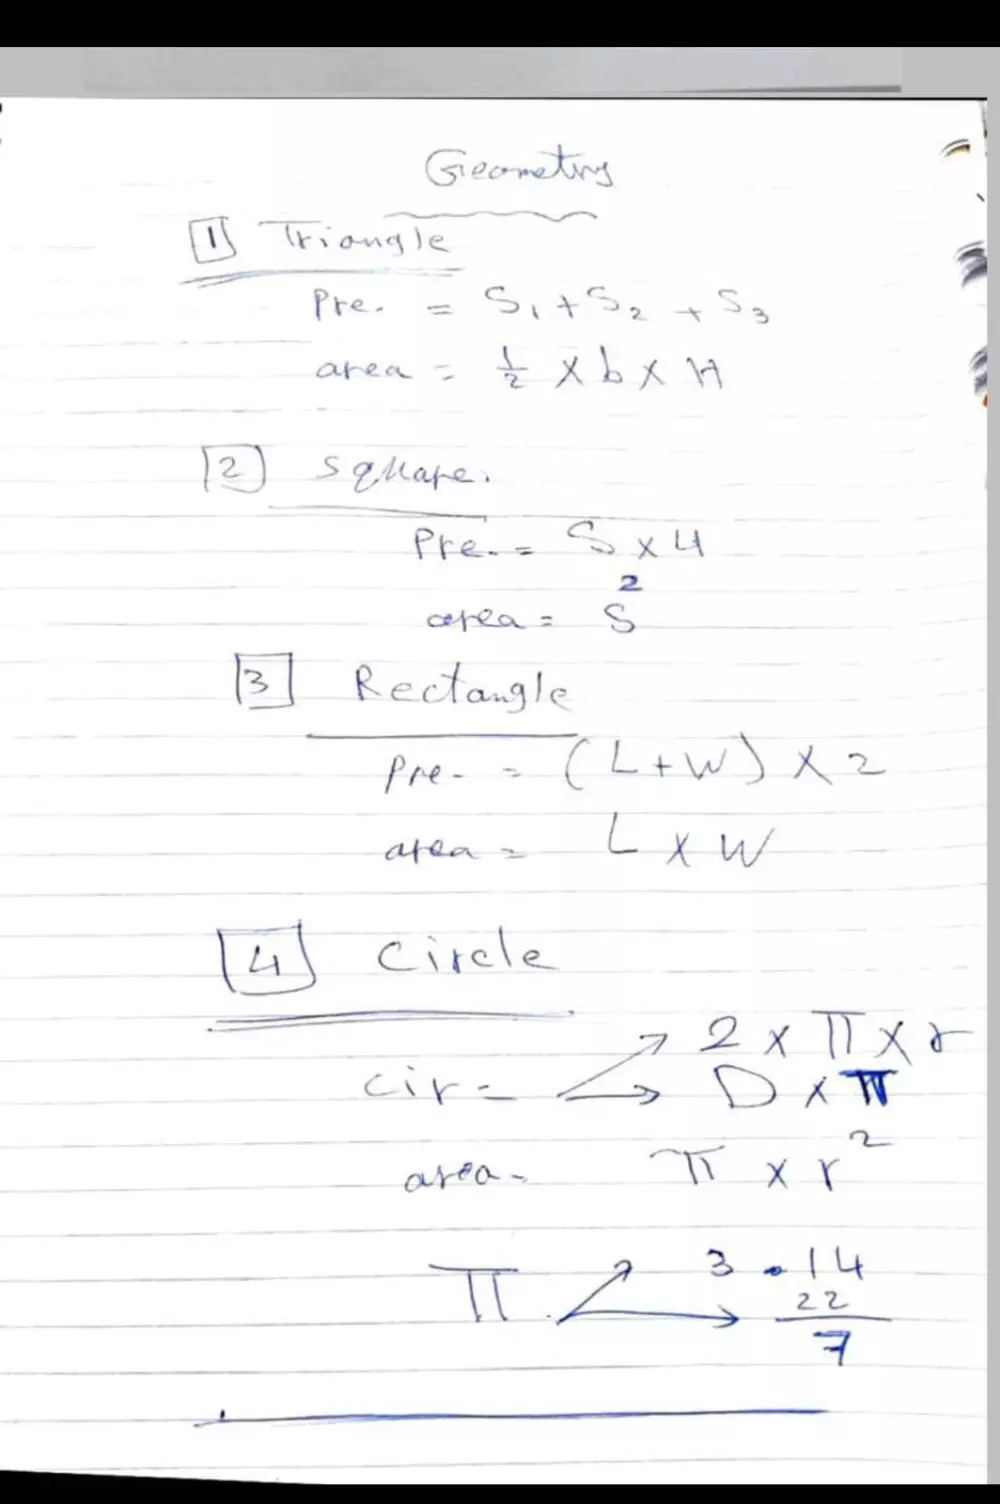 Geometry
1 Triangle
Pre. = S₁ + S₂ + S₃
area = 1/2 × b × H
2 Square.
Pre. = S × 4
area = S²
3 Rectangle
Pre. = (L + W) × 2
area = L × W
4 Circle
Cir = 2 × π × r
D × π
area = π × r²
π 3.14
22/7